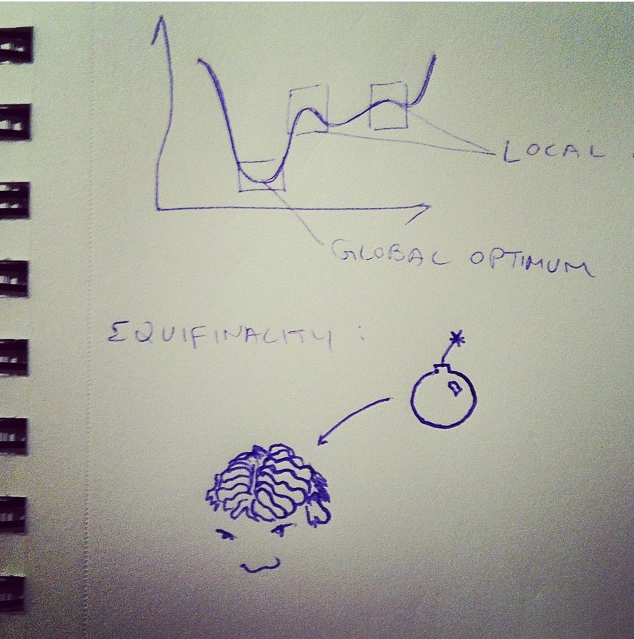 LOCAL
GLOBAL OPTIMUM
EQUIFINALITY :